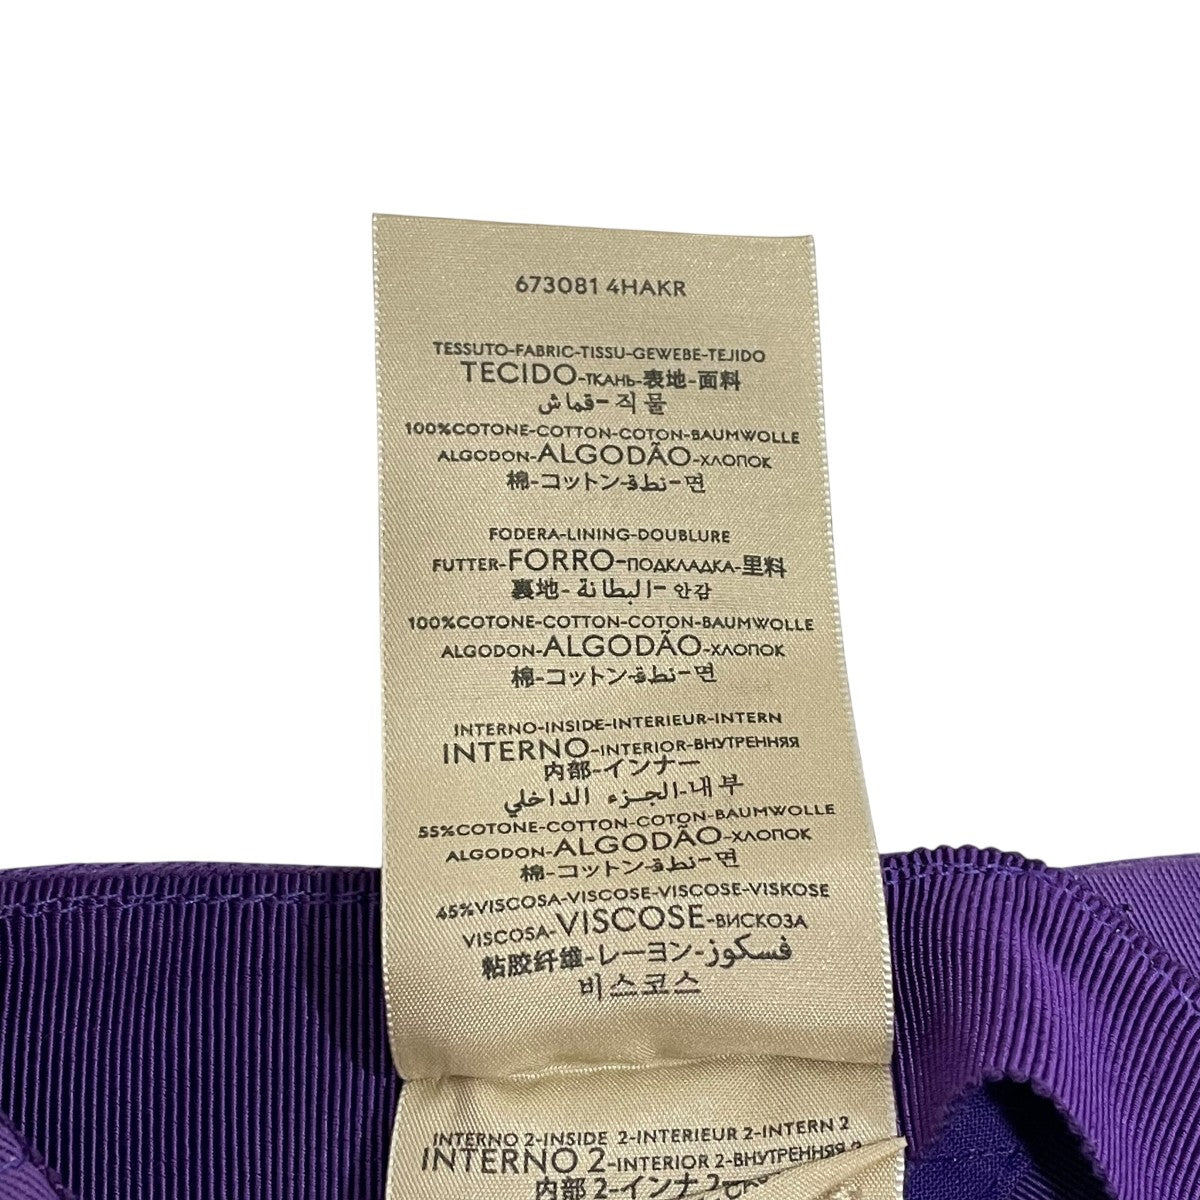 673081 4HAKR
TESSUTO-FABRIC-TISSU-GEWEBE-TEJIDO
TECIDO-ТКАНЬ-表地-面料
قماش-직물
100%COTONE-COTTON-COTON-BAUMWOLLE
ALGODON-ALGODÃO-ХЛОПОК
棉-コットン-نطق-면
FODERA-LINING-DOUBLURE
FUTTER-FORRO-ПОДКЛАДКА-里料
裏地-البطانة-안감
100%COTONE-COTTON-COTON-BAUMWOLLE
ALGODON-ALGODÃO-ХЛОПОК
棉-コットン-نطق-면
INTERNO-INSIDE-INTERIEUR-INTERN
INTERNO-INTERIOR-ВНУТРЕННЯЯ
内部-インナー
الجزء الداخلي-내부
55%COTONE-COTTON-COTON-BAUMWOLLE
ALGODON-ALGODÃO-ХЛОПОК
棉-コットン-نطق-면
45%VISCOSA-VISCOSE-VISCOSE-VISKOSE
VISCOSA-VISCOSE-ВИСКОЗА
粘胶纤维-レーヨン-فسكوز
비스코스
INTERNO 2-INSIDE 2-INTERIEUR 2-INTERN 2
INTERNO 2-INTERIOR 2-ВНУТРЕННЯЯ 2
内部 2-インナ 2